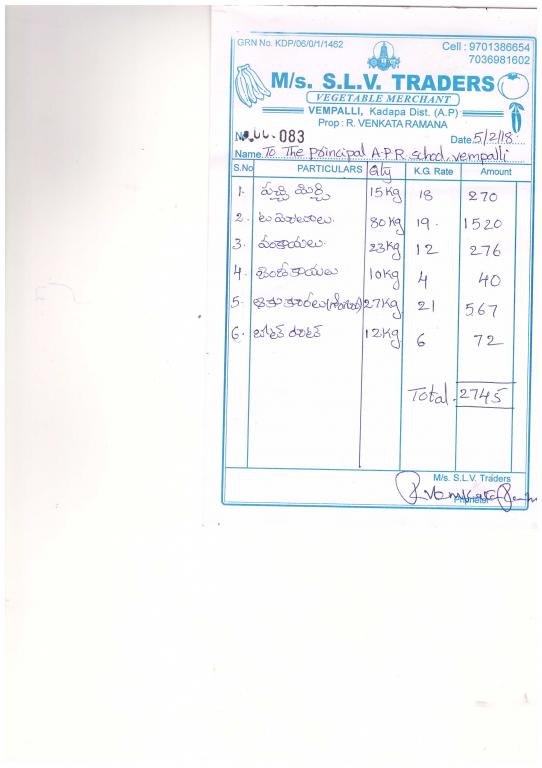 GRN No. KDP/06/0/1/1462
Cell : 9701386654
7036981602
M/s. S.L.V. TRADERS
VEGETABLE MERCHANT
VEMPALLI, Kadapa Dist. (A.P)
Prop : R. VENKATA RAMANA
No. 083 Date 5/2/18
Name To The principal A.P.R. school, vempalli
S.No PARTICULARS Qty K.G. Rate Amount
1. పచ్చి మిర్చి 15 Kg 18 270
2. టమోటాలు. 80 Kg 19. 1520
3. వంకాయలు. 23 Kg 12 276
4. 10 Kg 4 40
5. ఆకు కూరలు 27 Kg 21 567
6. బీట్ రూట్ 12 Kg 6 72
Total. 2745
M/s. S.L.V. Traders